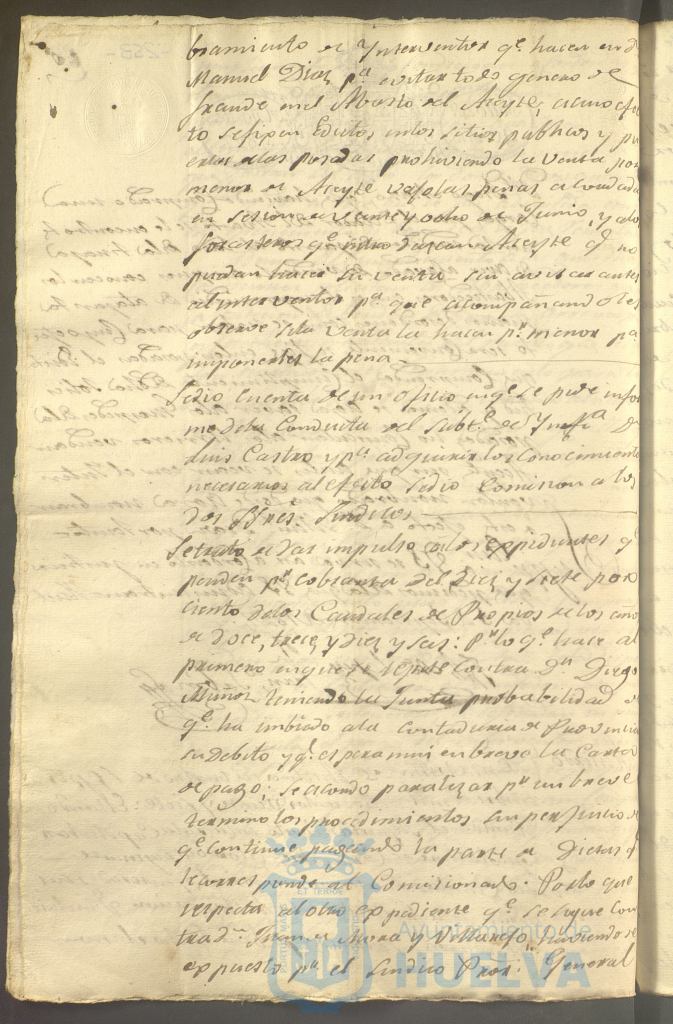 bramiento de Ynterventor qe. hacen en d
Manuel Diaz pa. evitar todo genero de
fraude en el Abasto del Aceyte, a cuio efec
to se fixen Edictos en los sitios publicos y pu
ertas de las posadas prohiviendo la venta por
menor de Aceyte vajo las penas acordadas
en sesion de veinte y ocho de Junio, y a los
forasteros qe. introduzcan Aceyte qe. no
puedan hacer su venta sin avisar antes
al interventor pa. que acompañandoles
observe si la venta la hacen pr. menor pa.
imponerles la pena
Se dio cuenta de un oficio en qe. se pide infor
me de la Conducta del Subte. de Ynfa. Dn
Luis Castro y pa. adquirir los conocimientos
necesarios al efecto se dio Comision a los
dos SSres. Sindicos
Se trato de dar impulso a los expedientes qe
penden pr. cobranza del Diez y siete por
ciento de los Caudales de Propios de los años
de doce, trece, y diez y seis: Pr. lo qe. hace al
primero en que se repite contra Dn. Diego
Muñoz teniendo la Junta probabilidad de
qe. ha imbiado a la contaduria de Provincia
su Debito y qe. espera mui en breve la Carta
de pago; se acordo paralizar pr. un breve
termino los procedimientos sin perjuicio de
qe. continue pagando la parte de Dietas qe
le corresponde al Comisionado. Por lo que
respecta al otro expediente qe. se sigue con
tra dn. Juan de Mora y Villarejo, haviendose
expuesto pr. el Sindico Pror. General
Ayuntamiento de
HUELVA